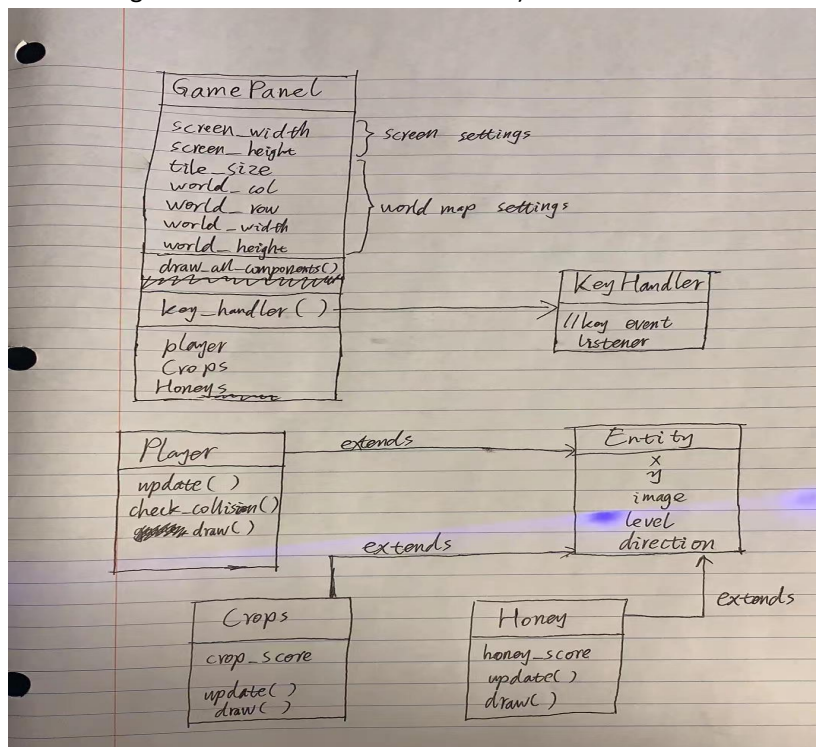 GamePanel
screen_width
screen_height
} screen settings
tile_size
world_col
world_row
world_width
world_height
} world map settings
draw_all_components()
key_handler()
player
Crops
Honeys
KeyHandler
//key event
listener
Player
update()
check_collision()
draw()
extends
Entity
x
y
image
level
direction
extends
Crops
crop_score
update()
draw()
Honey
honey_score
update()
draw()
extends